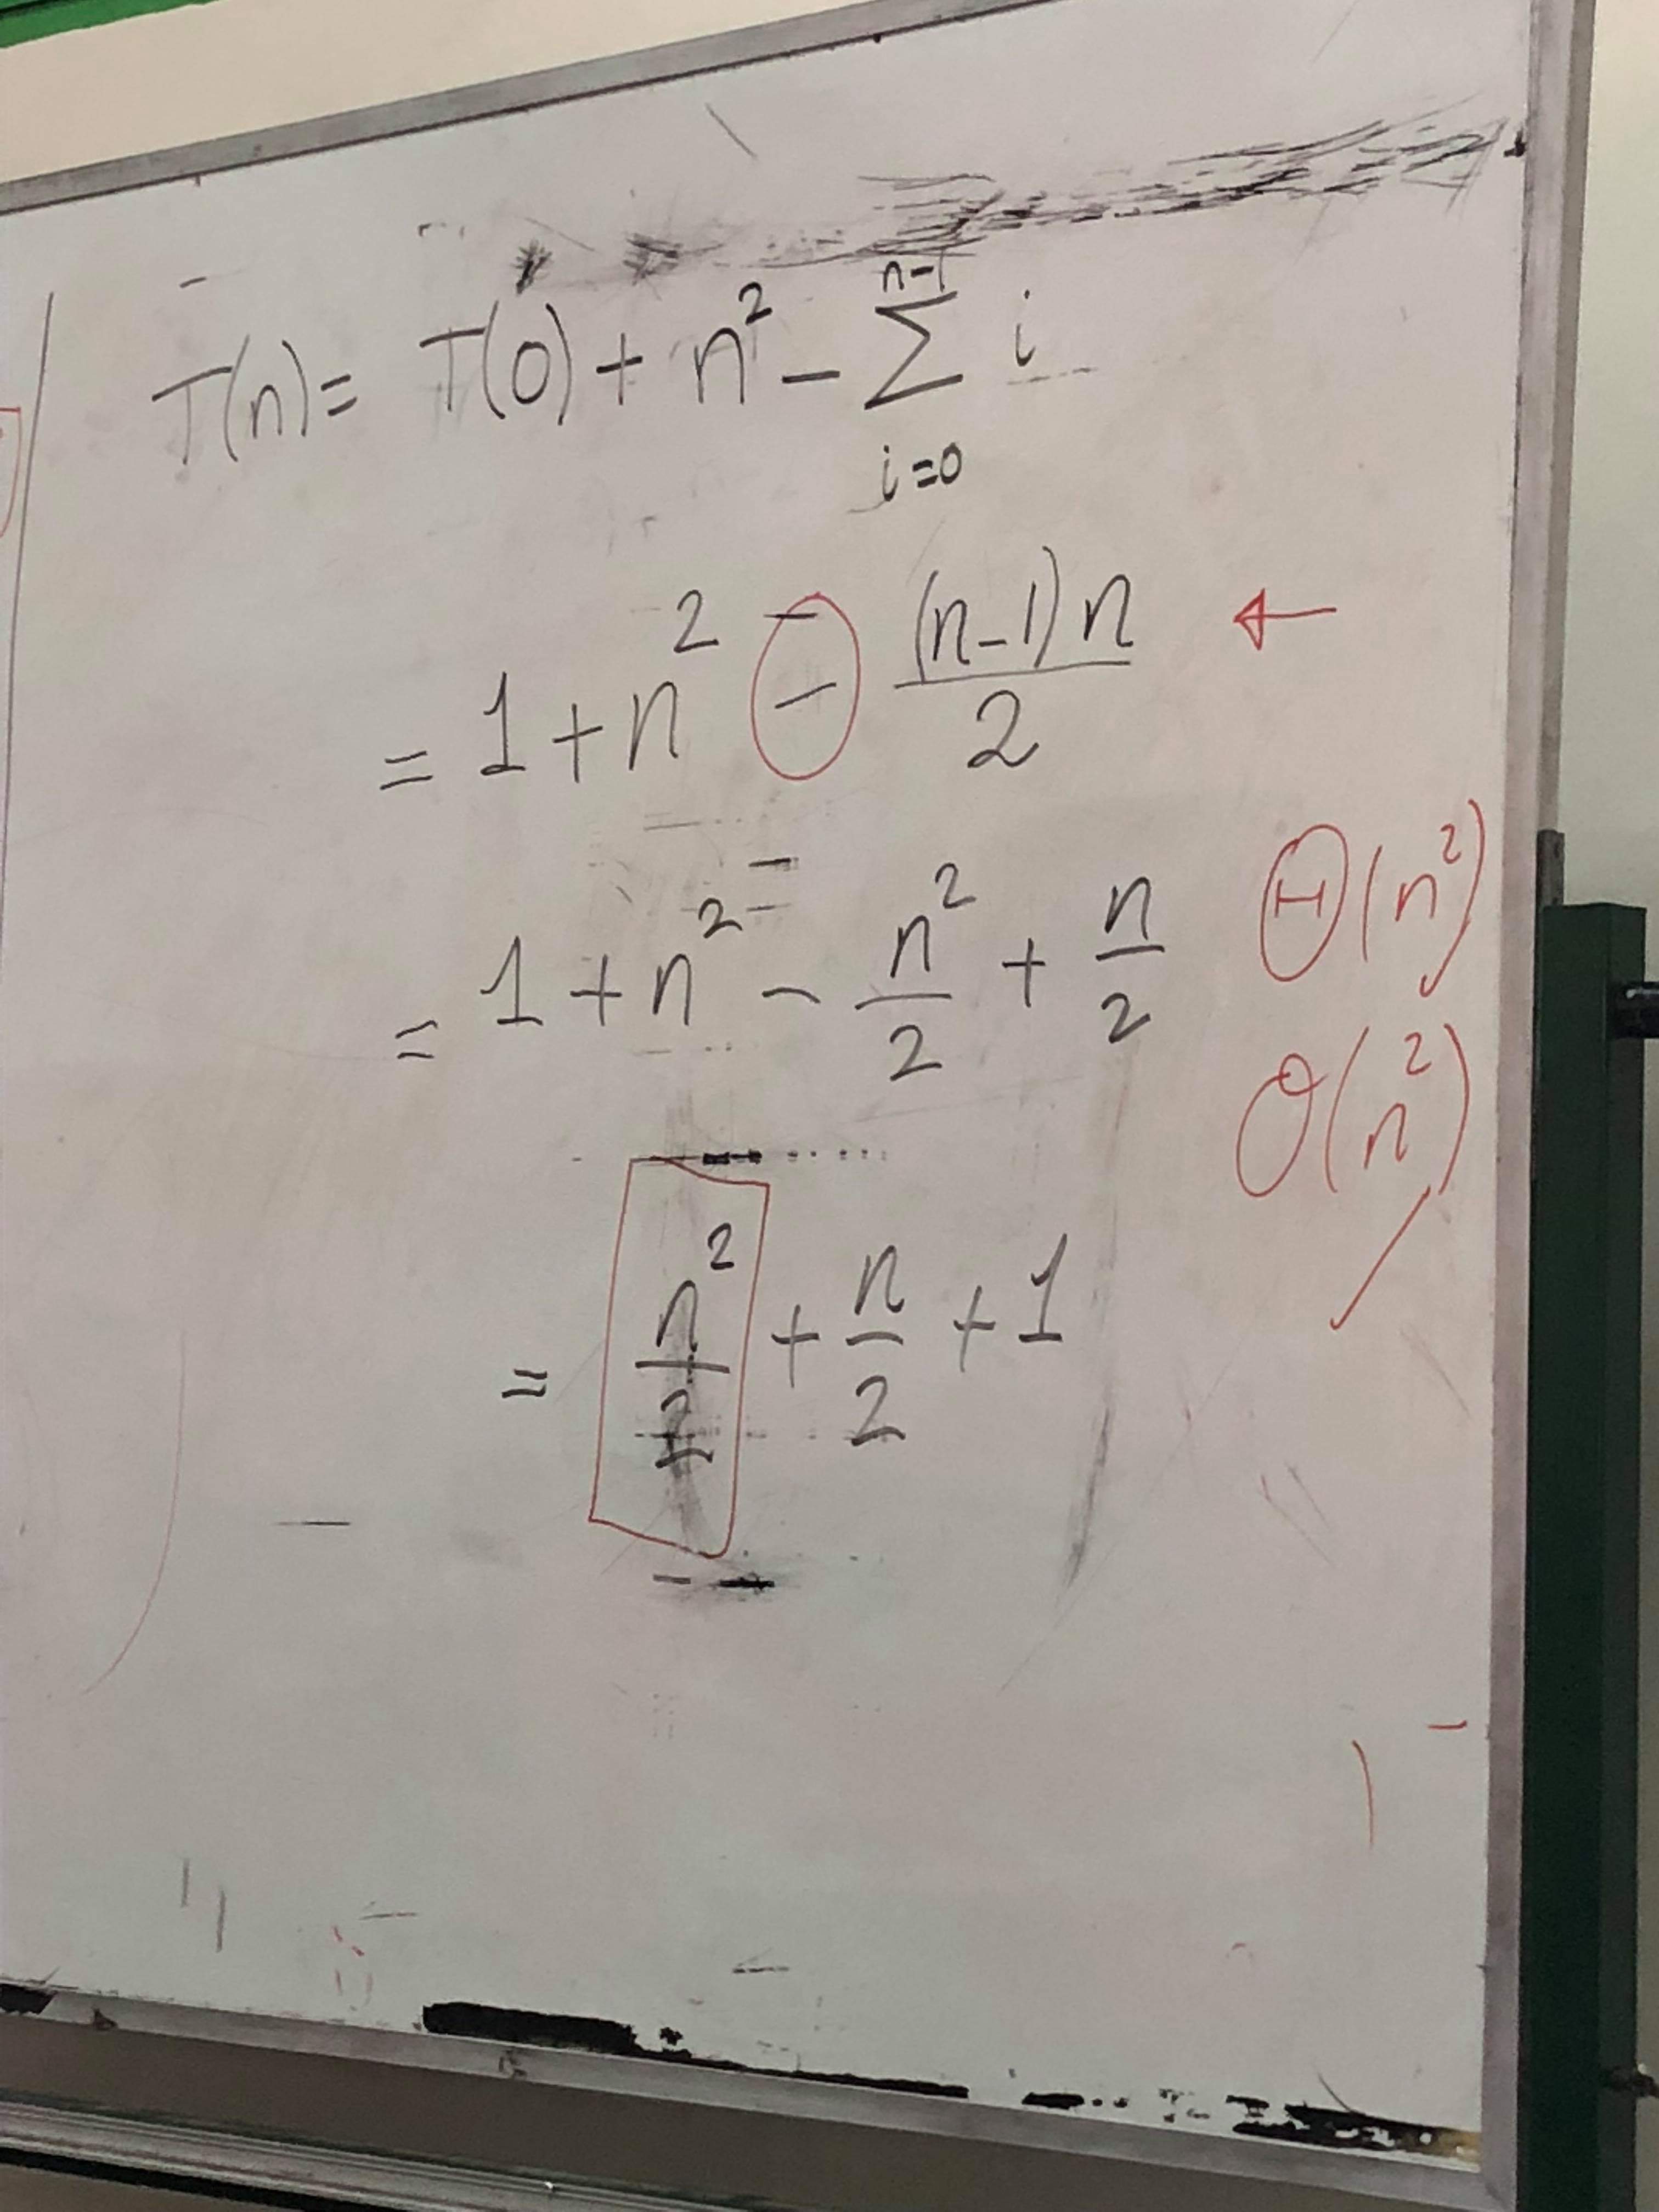 T(n) = T(0) + n² - ∑_{i=0}^{n-1} i
= 1 + n² - (n-1)n/2 ←
= 1 + n² - n²/2 + n/2
Θ(n²)
O(n²)
= n²/2 + n/2 + 1